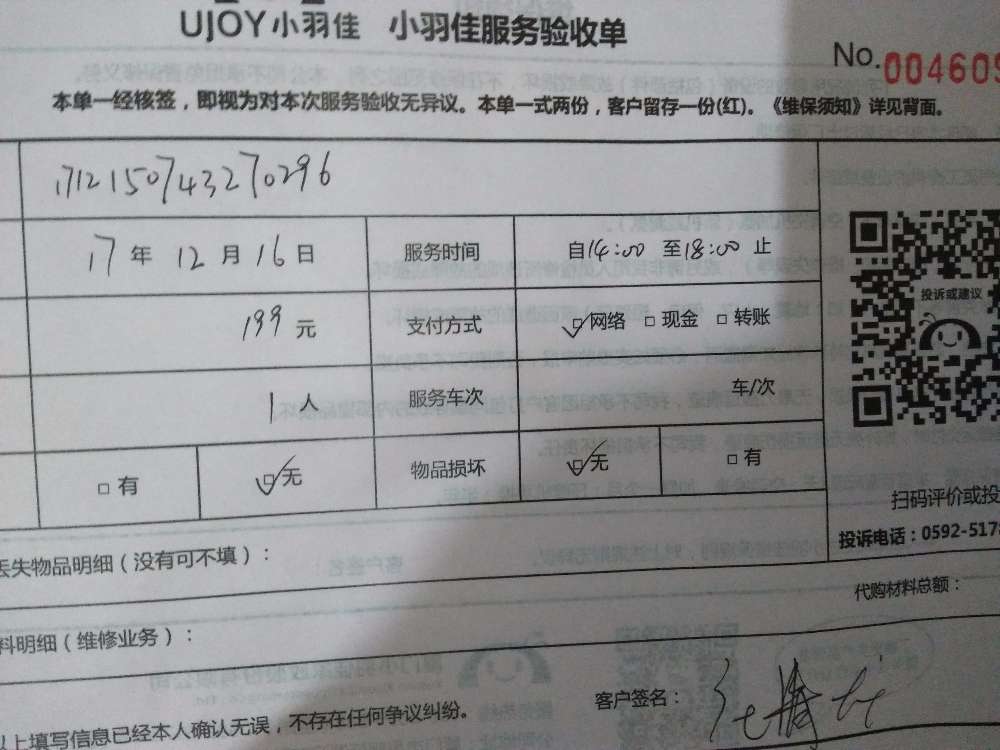 UJOY小羽佳 小羽佳服务验收单
No.004609
本单一经核签，即视为对本次服务验收无异议。本单一式两份，客户留存一份(红)。《维保须知》详见背面。
1712150743270296
17 年 12 月 16 日 服务时间 自14:00 至18:00 止
199 元 支付方式 网络 现金 转账
投诉或建议
1 人 服务车次 车/次
有 无 物品损坏 无 有
扫码评价或投
投诉电话：0592-517
丢失物品明细（没有可不填）：
代购材料总额：
料明细（维修业务）：
客户签名：
以上填写信息已经本人确认无误，不存在任何争议纠纷。